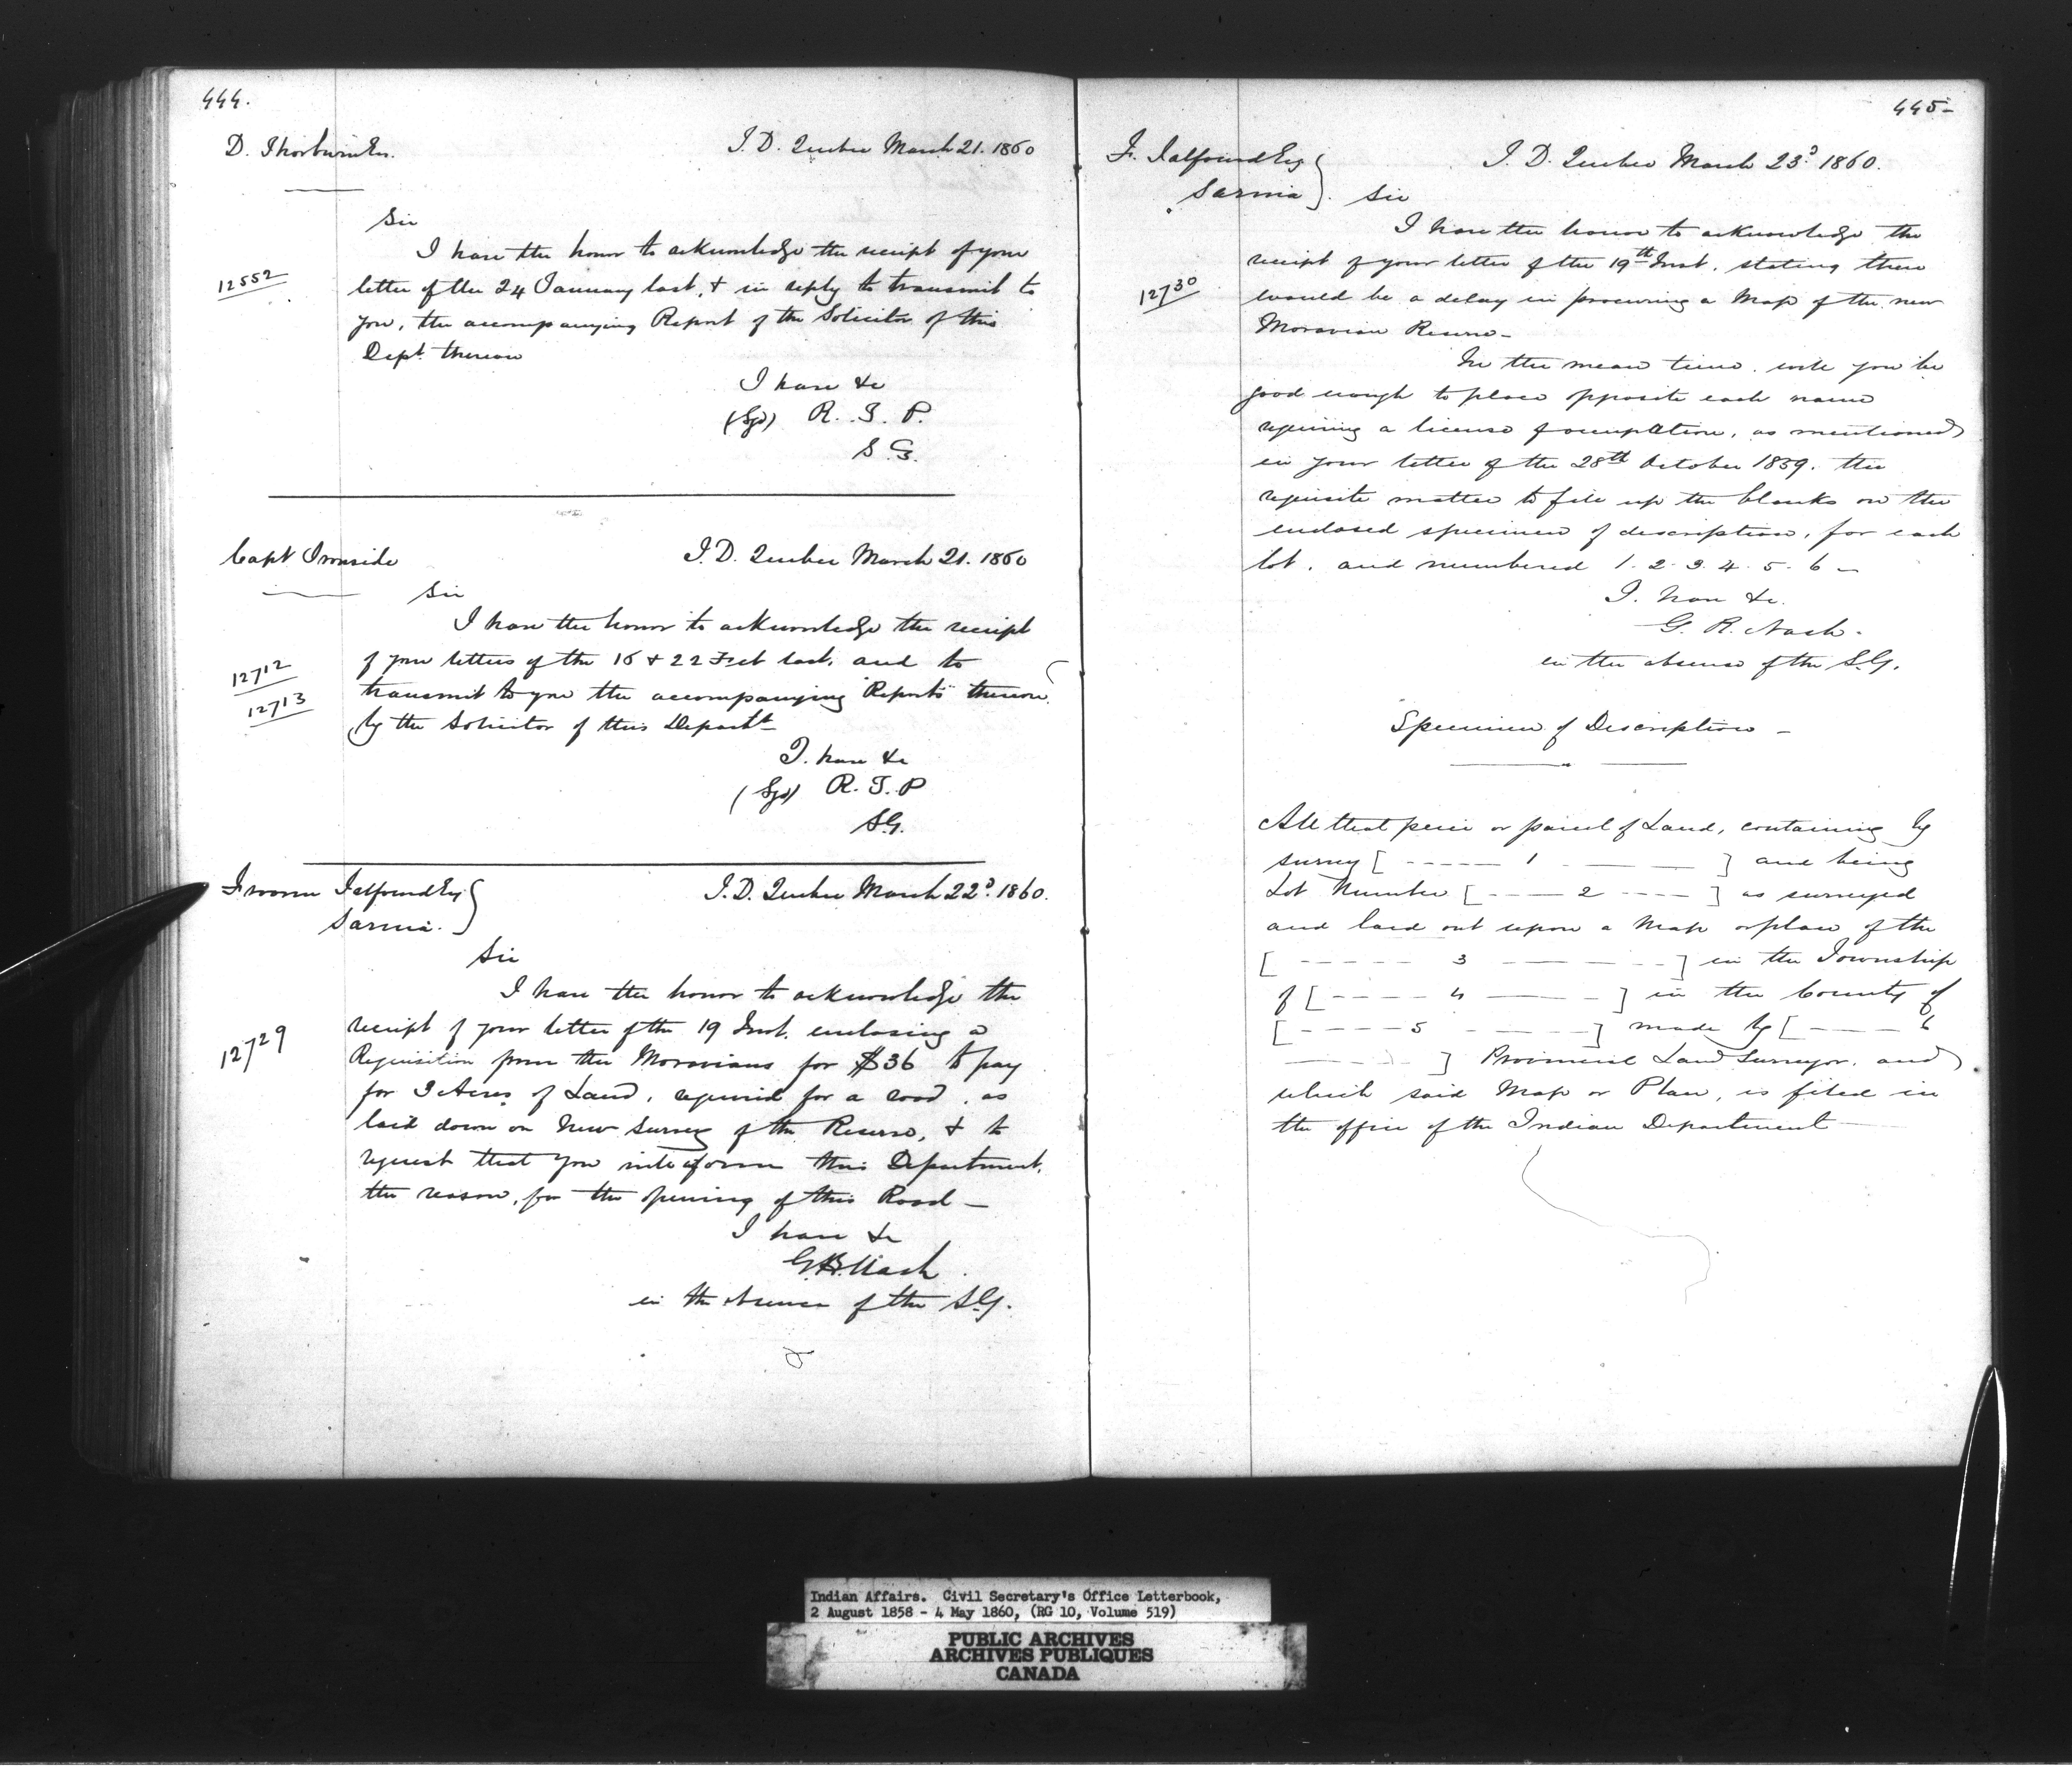 444.
D. Thorburn Esq. I.D. Quebec March 21. 1860
Sir
I have the honor to acknowledge the receipt of your
12552 letter of the 24 January last, & in reply to transmit to
you, the accompanying Report of the Solicitor of this
Dept. thereon
I have &c
(Sgd) R. T. P.
S. G.
Capt Ironside I.D. Quebec March 21. 1860
Sir
I have the honor to acknowledge the receipt
12712 of your letters of the 16 & 22 Feb last, and to
12713 transmit to you the accompanying "Reports" thereon
by the Solicitor of this Departt
I have &c
(Sgd) R. T. P
S.G.
Froome Talfourd Esq I.D. Quebec March 22d. 1860.
Sarnia.
Sir
I have the honor to acknowledge the
12729 receipt of your letter of the 19 Inst. enclosing a
Requisition from the Moravians for $36 to pay
for 3 Acres of Land, required for a road, as
laid down on New Survey of the Reserve, & to
request that you will inform this Department,
the reason, for the opening of this Road —
I have &c
G.R. Nash.
in the absence of the S.G.
445-
F. Talfourd Esq I.D. Quebec March 23d 1860.
Sarnia Sir
I have the honor to acknowledge the
receipt of your letter of the 19th Inst. stating there
12730 would be a delay in procuring a Map of the new
Moravian Reserve-
In the mean time. will you be
good enough to place opposite each name
requiring a license of occupation, as mentioned
in your letter of the 28th October 1859. the
requisite matter to fill up the blanks on the
enclosed specimen of description, for each
lot. and numbered 1. 2. 3. 4. 5. 6 -
I. have &c.
G. R. Nash.
in the absence of the S.G.
Specimen of Description -
All that piece or parcel of Land, containing by
survey [ ----- 1 ----- ] and being
Lot Number [ ----- 2 ----- ] as surveyed
and laid out upon a Map or plan of the
[ ----- 3 ----- ] in the Township
of [ ----- 4 ----- ] in the County of
[ ----- 5 ----- ] made by [ ----- 6
----- ] Provincial Land Surveyor, and
which said Map or Plan, is filed in
the office of the Indian Department
Indian Affairs. Civil Secretary's Office Letterbook,
2 August 1858 - 4 May 1860, (RG 10, Volume 519)
PUBLIC ARCHIVES
ARCHIVES PUBLIQUES
CANADA